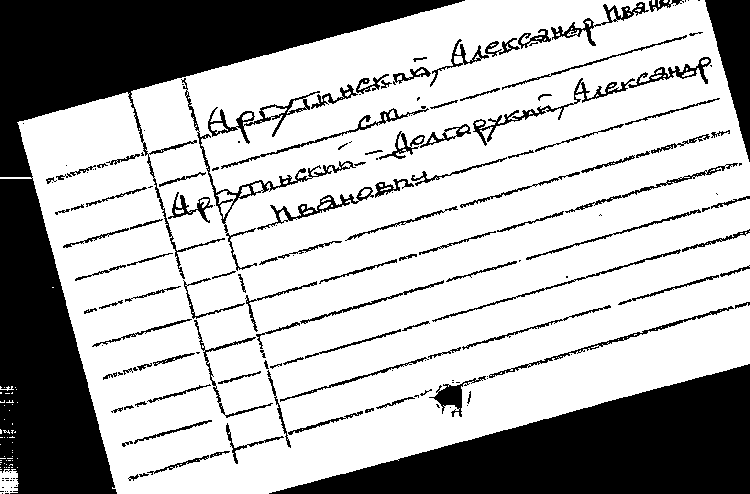 Аргутинский, Александр Иванов
см.:
Аргутинский-Долгорукий, Александр
Иванович.